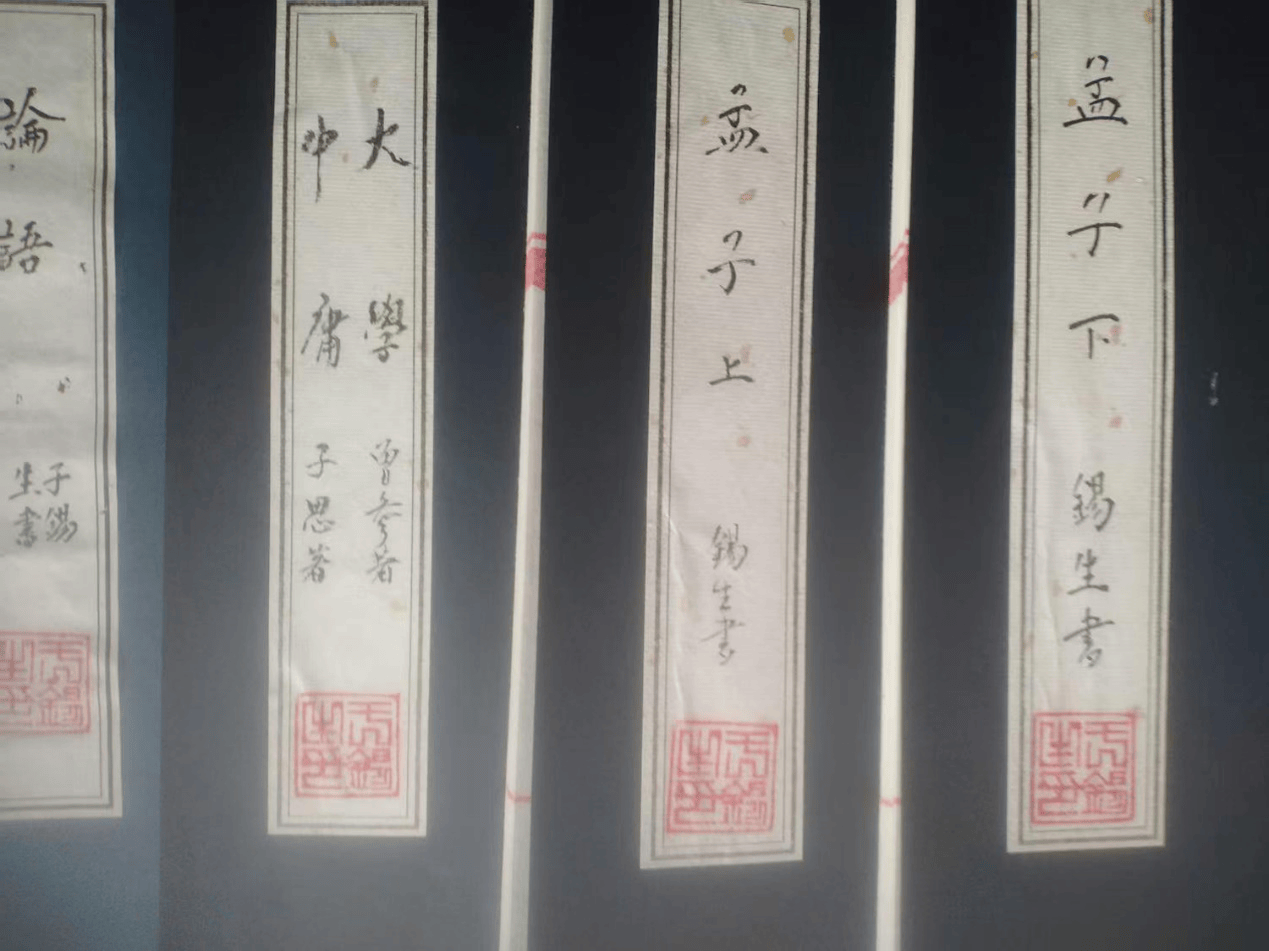 論語
子錫
生書
大學 曾參著
中庸 子思著
孟子上 錫生書
孟子下 錫生書